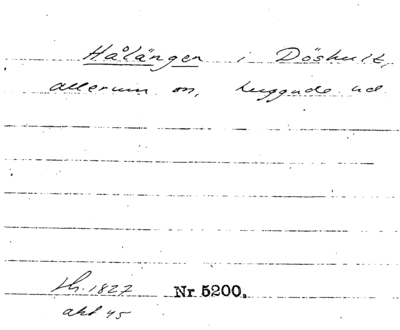 Hålängen i Döshult,
allerum sn, luggude hd
Lh. 1827 Nr 5200.
akt 45